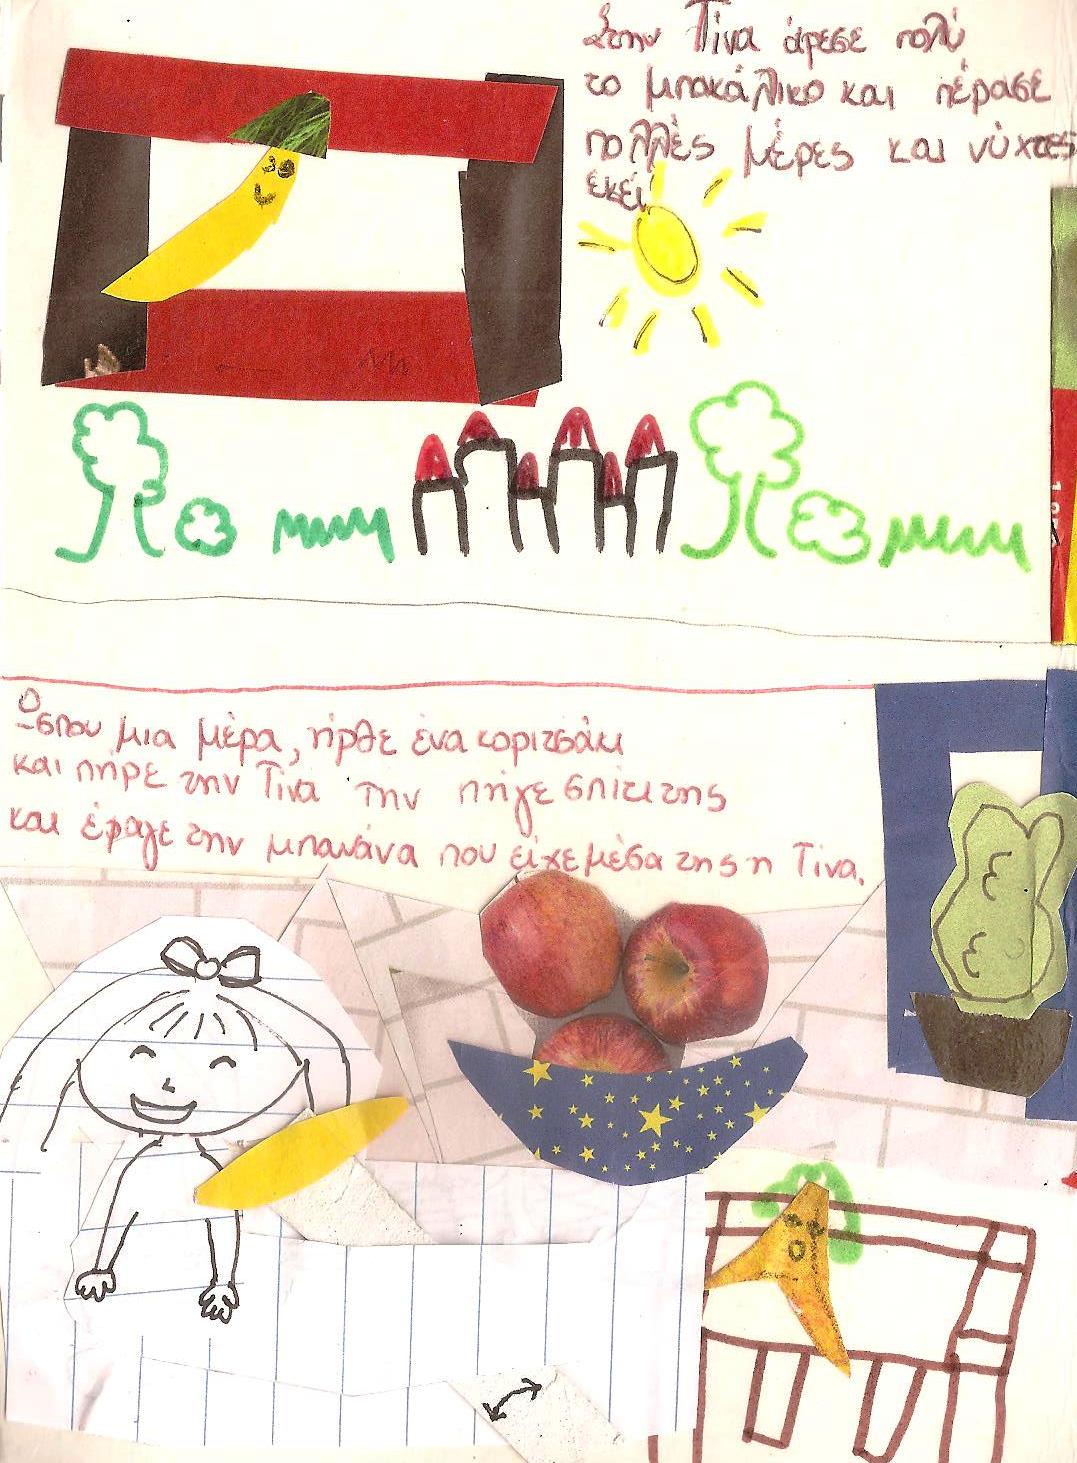 Στην Τίνα άρεσε πολύ
το μπακάλικο και πέρασε
πολλές μέρες και νύχτες
εκεί
Ώσπου μια μέρα, ήρθε ένα κοριτσάκι
και πήρε την Τίνα την πήγε σπίτι της
και έφαγε την μπανάνα που είχε μέσα της η Τίνα.